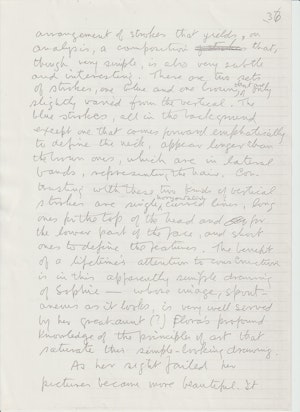 36
arrangement of strokes that yields, on
analysis, a composition that,
though very simple, is also very subtle
and interesting. There are two sets
of strokes, one blue and one brown, but only
slightly varied from the vertical. The
blue strokes, all in the background
except one that comes forward emphatically
to define the neck, appear longer than
the brown ones, which are in lateral
bands, representing the hair. Con-
trasting with these two kinds of vertical
strokes are singly curved lines, long
ones for the top of the head and for
the lower part of the face, and short
ones to define the features. The benefit
of a lifetime's attention to construction
is in this apparently simple drawing
of Sophie — whose image, spont-
aneous as it looks, is very well served
by her great-aunt (?) Flora's profound
knowledge of the principles of art that
saturate this simple-looking drawing.
As her sight failed her
pictures became more beautiful. It